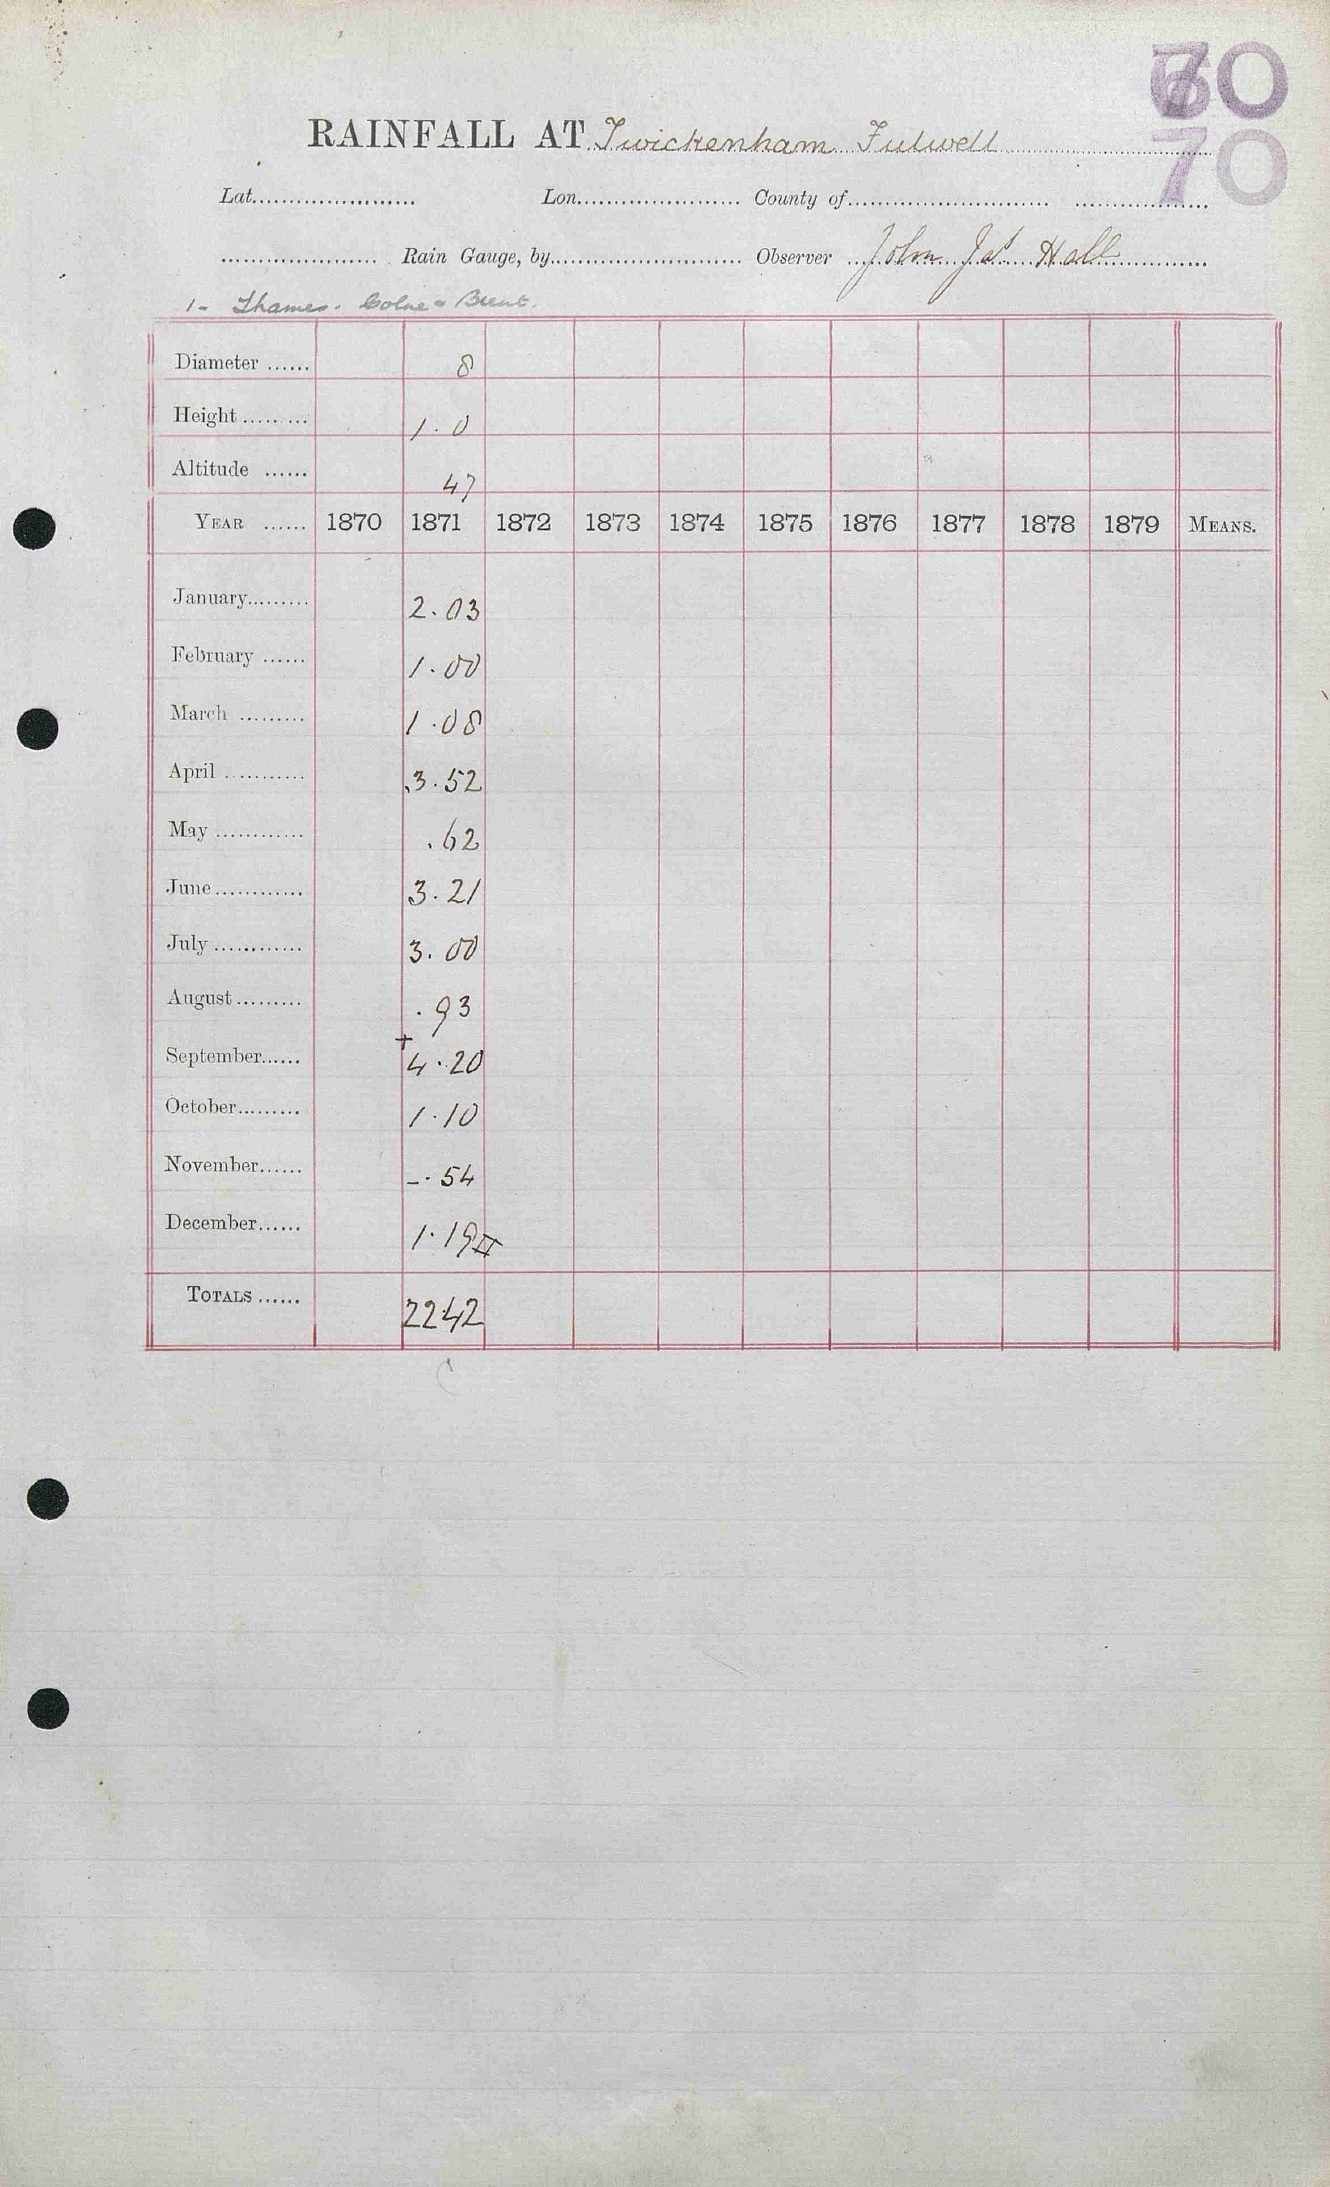 70
70
RAINFALL AT Twickenham Fulwell
Lat. Lon. County of
Rain Gauge, by Observer John Jas Hall
1 - Thames. Colne & Brent.
Diameter 8
Height 1.0
Altitude 47
YEAR 1870 1871 1872 1873 1874 1875 1876 1877 1878 1879 MEANS.
January 2.03
February 1.00
March 1.08
April 3.52
May .62
June 3.21
July 3.00
August .93
September + 4.20
October 1.10
November -.54
December 1.19
TOTALS 22.42